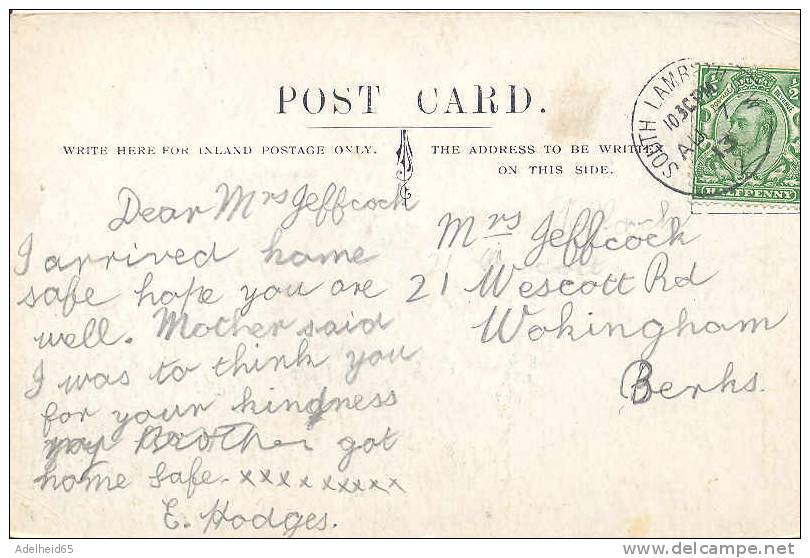 POST CARD.
WRITE HERE FOR INLAND POSTAGE ONLY.
THE ADDRESS TO BE WRITTEN
ON THIS SIDE.
SOUTH LAMB
10.30PM
AU
13
HALFPENNY
Dear Mrs Jeffcock
I arrived home
safe hope you are
well. Mother said
I was to think you
for your kindness
my Brother got
home safe. xxxx xxxxx
E. Hodges.
Mrs Jeffcock
21 Wescott Rd
Wokingham
Berks.
Adelheid65
www.delcampe.net